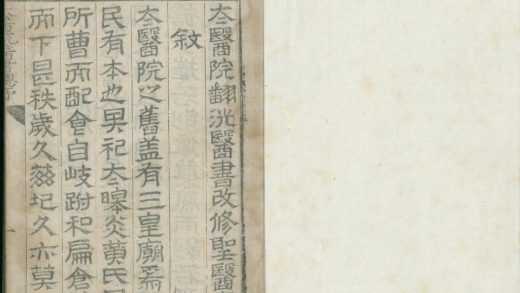 夳醫院翻洗醫書改修聖醫
敘
夳醫院之舊盖有三皇廟焉
民有本也其祀夳皞炎黃氏
所曹而配食自岐跗和扁倉
而下昰秩歲久茲圮久亦莫